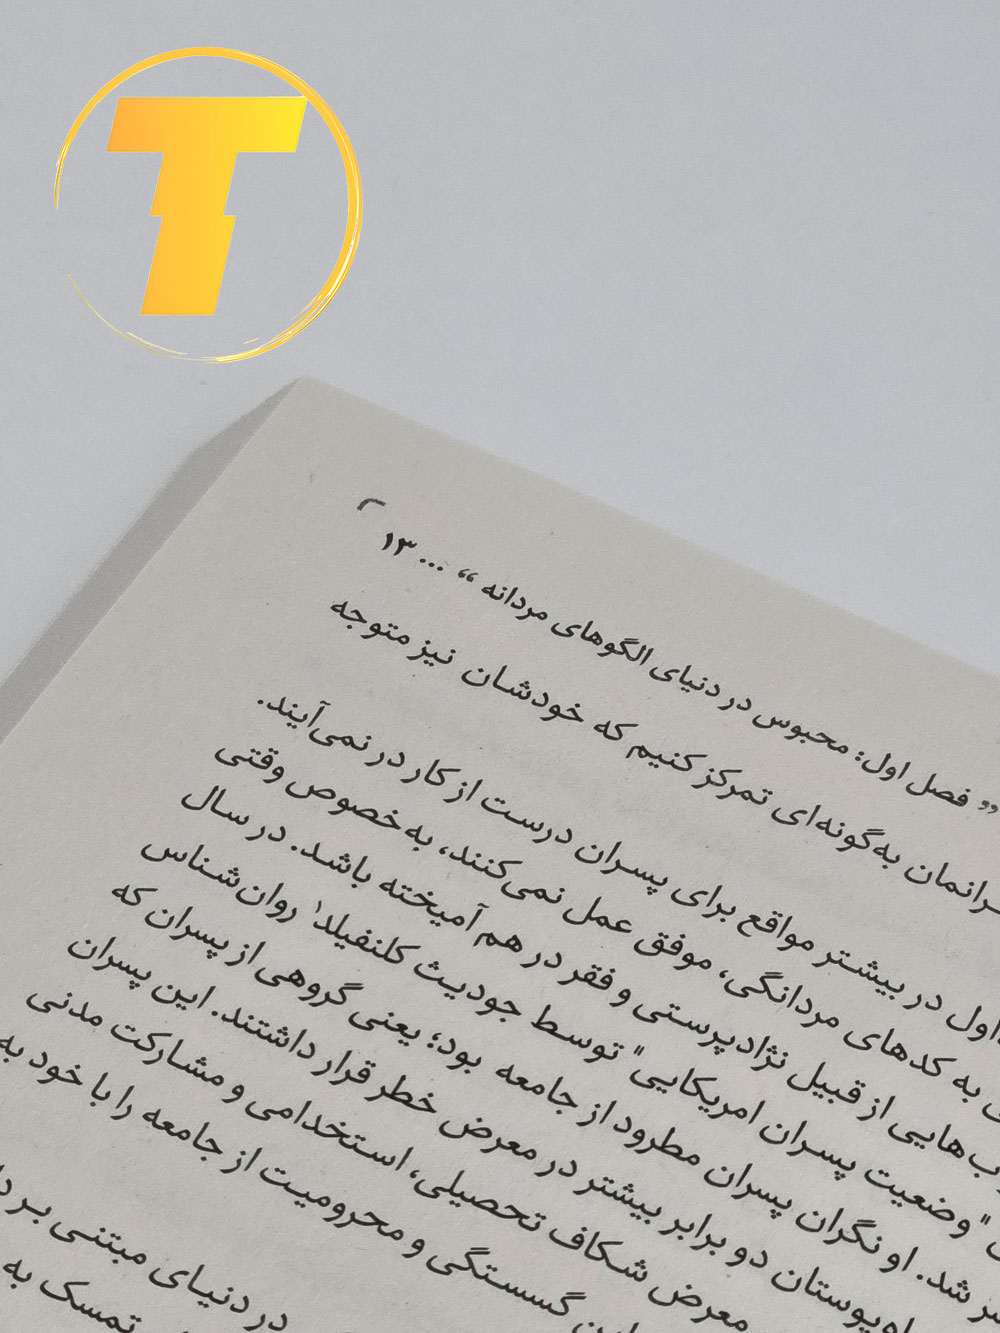 T
” فصل اول: محبوس در دنیای الگوهای مردانه “ ... ۱۳
به‌گونه‌ای تمرکز کنیم که خودشان نیز متوجه
اول در بیشتر مواقع برای پسران درست از کار در نمی‌آیند.
به کدهای مردانگی، موفق عمل نمی‌کنند، به‌خصوص وقتی
از قبیل نژادپرستی و فقر در هم آمیخته باشد. در سال
"وضعیت پسران امریکایی" توسط جودیث کلنفیلد۱ روان‌شناس
شد. او نگران پسران مطرود از جامعه بود؛ یعنی گروهی از پسران که
دو برابر بیشتر در معرض خطر قرار داشتند. این پسران
معرض شکاف تحصیلی، استخدامی و مشارکت مدنی
گسستگی و محرومیت از جامعه را با خود به
در دنیای مبتنی بر
تمسک به